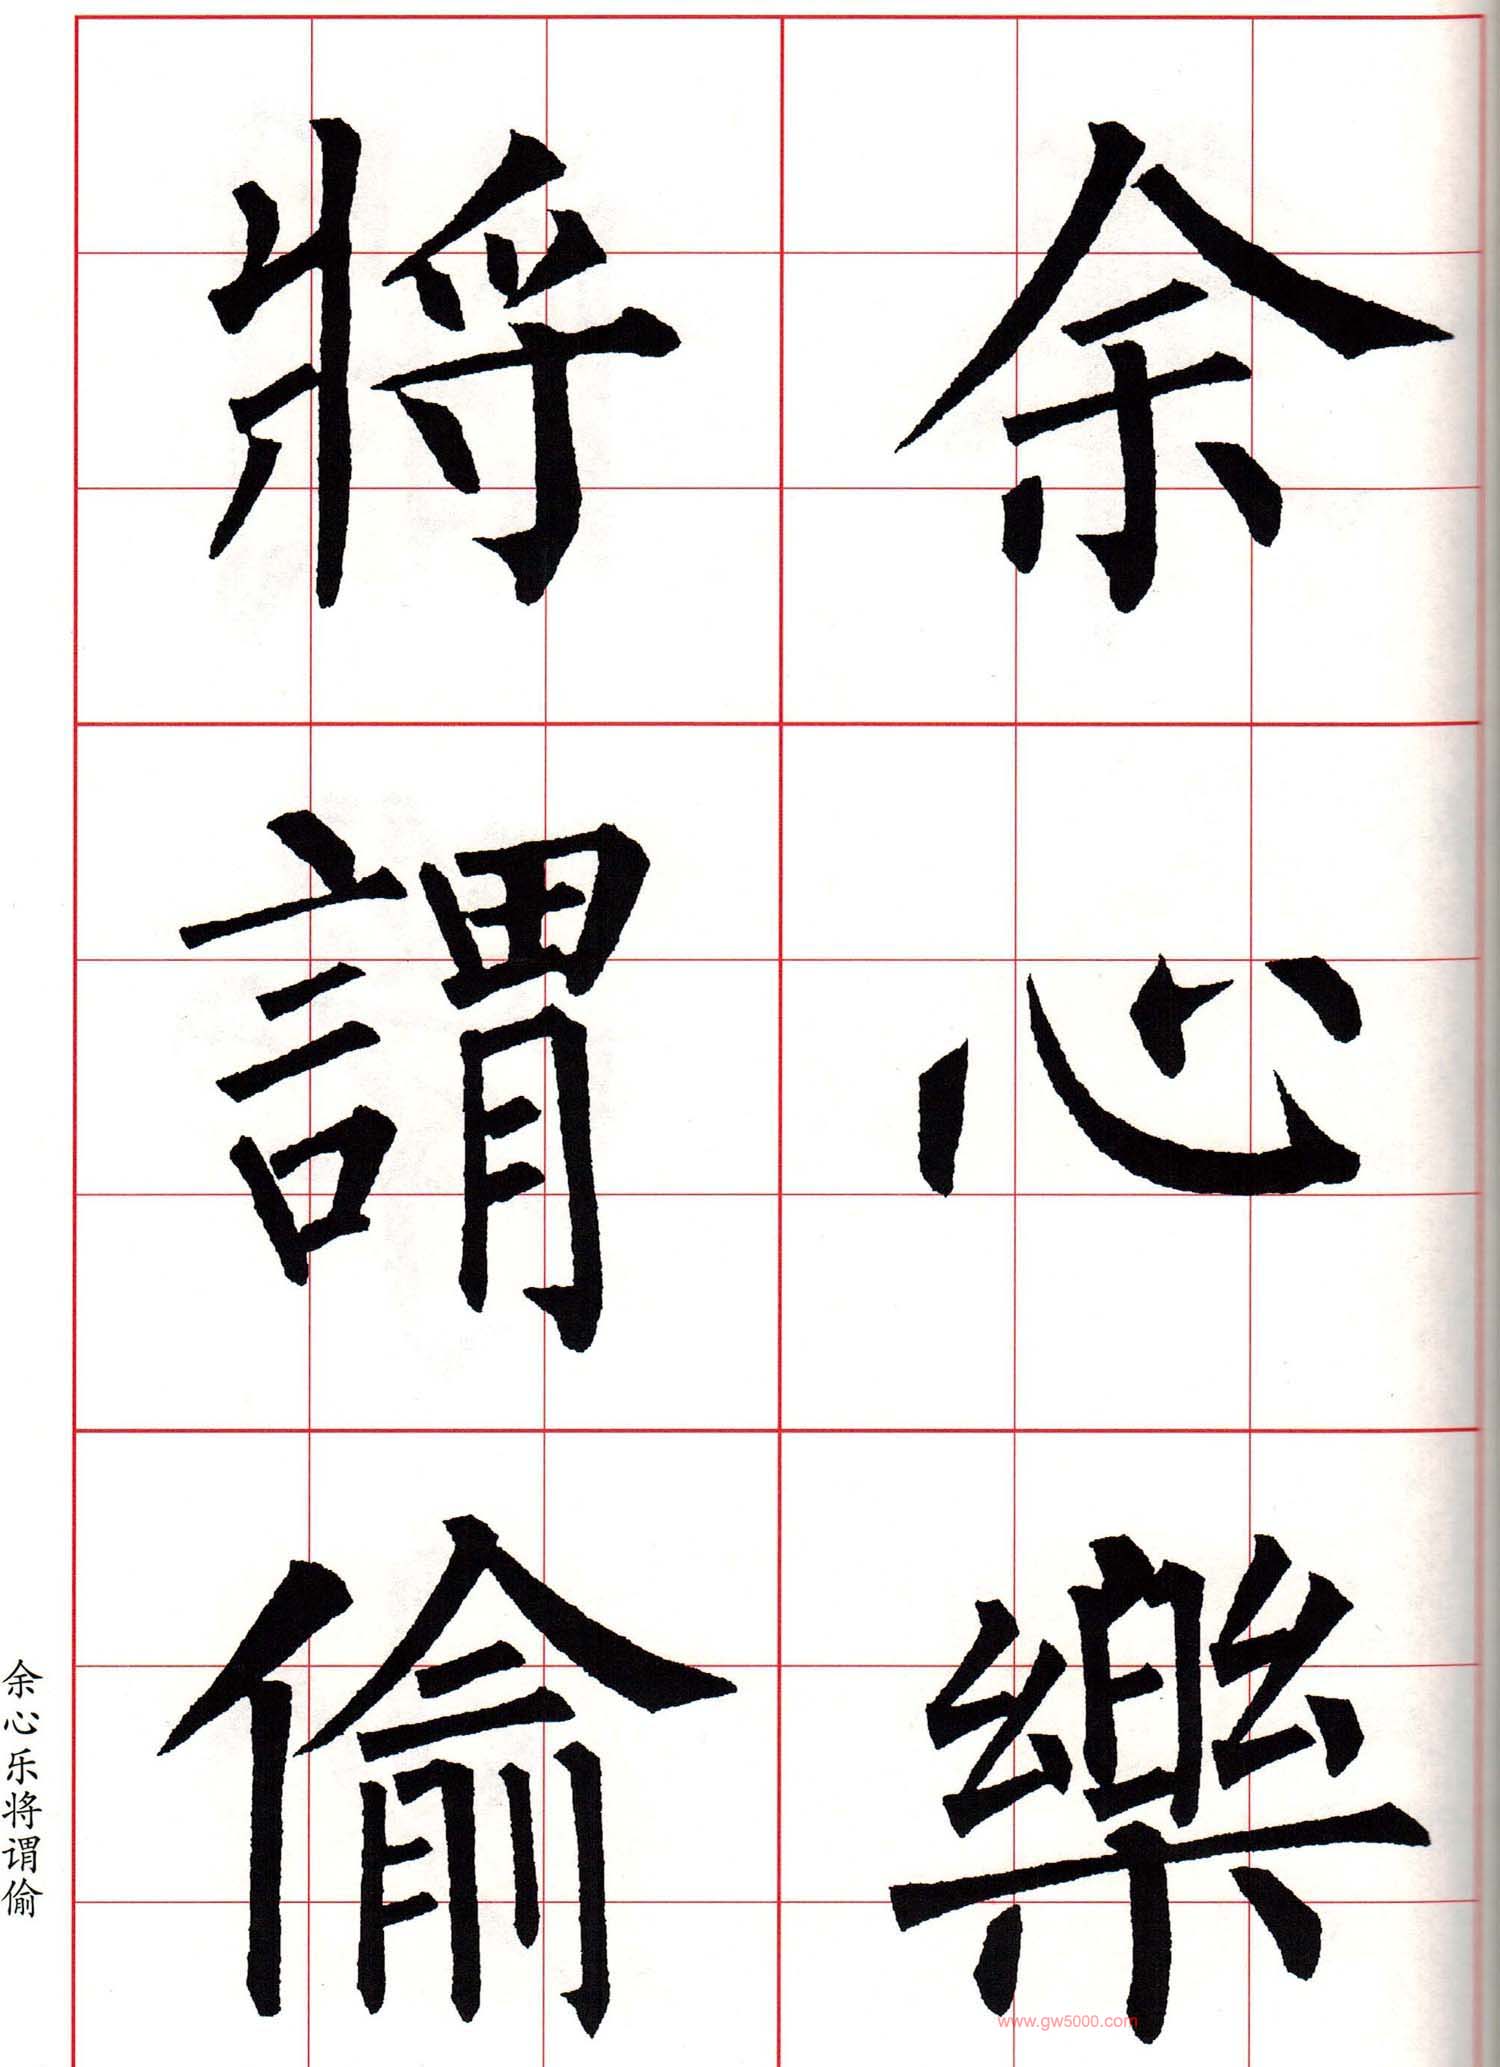 余心樂
將謂偷
余心乐将谓偷
www.gw5000.com